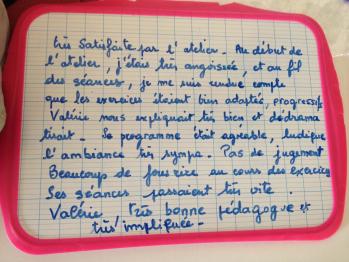 très satisfaite par l'atelier. Au début de
l'atelier, j'étais très angoissée, et au fil
des séances, je me suis rendue compte
que les exercices étaient bien adaptés, progressifs
Valérie nous expliquait très bien et dédrama
tisait. Le programme était agréable, ludique
l'ambiance très sympa. Pas de jugement
Beaucoup de fous rires au cours des exercices
Les séances passaient très vite.
Valérie très bonne pédagogue et
très impliquée.